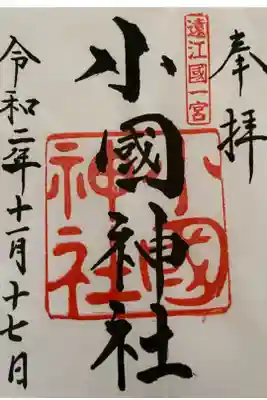 奉拝
遠江國一宮
小國神社
小國神社
令和二年十一月十七日